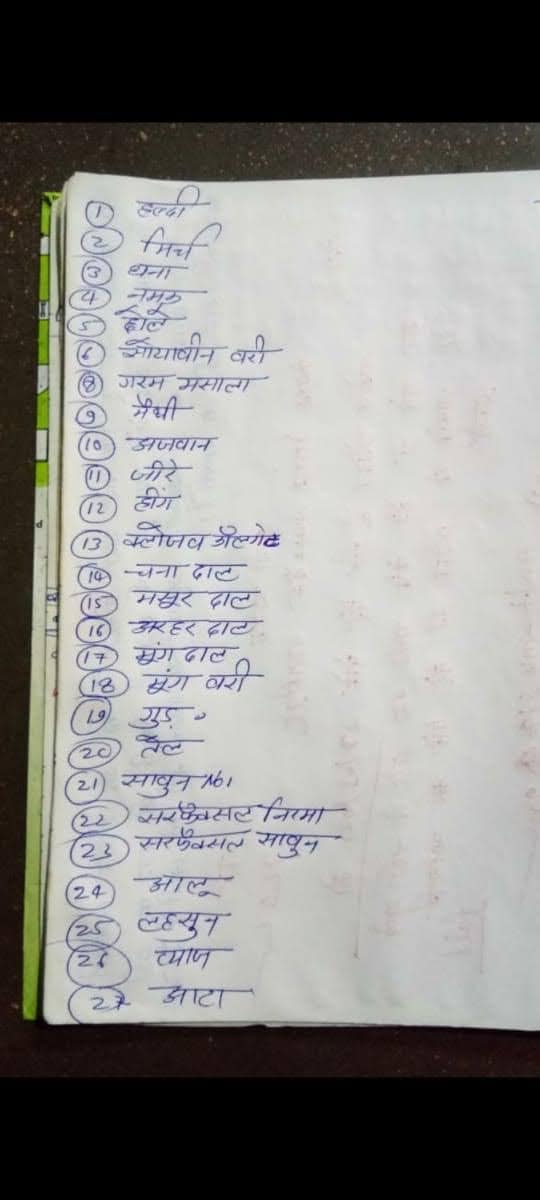 1 हल्दी
2 मिर्च
3 धना
4 नमक
5 छोले
6 सोयाबीन वरी
8 गरम मसाला
9 मैथी
10 अजवान
11 जीरे
12 हींग
13 क्लोजव कॅलगेट
14 चना दाल
15 मसूर दाल
16 अरहर दाल
17 मूंग दाल
18 मूंग वरी
19 गुड़
20 तैल
21 सावुन No1
22 सरफैक्सल निरमा
23 सरफैक्सल सावुन
24 आलू
25 लहसुन
26 प्याज
27 आटा